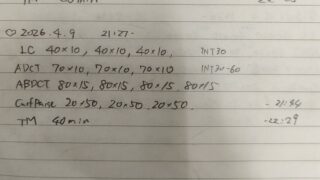 ♡2026.4.9 21:27-
LC 40×10, 40×10, 40×10, INT30
ADCT 70×10, 70×10, 70×10 INT30-60
ABDCT 80×15, 80×15, 80×15, 80×15
20×50, 20×50, 20×50. -21:44
TM 40min -22:29